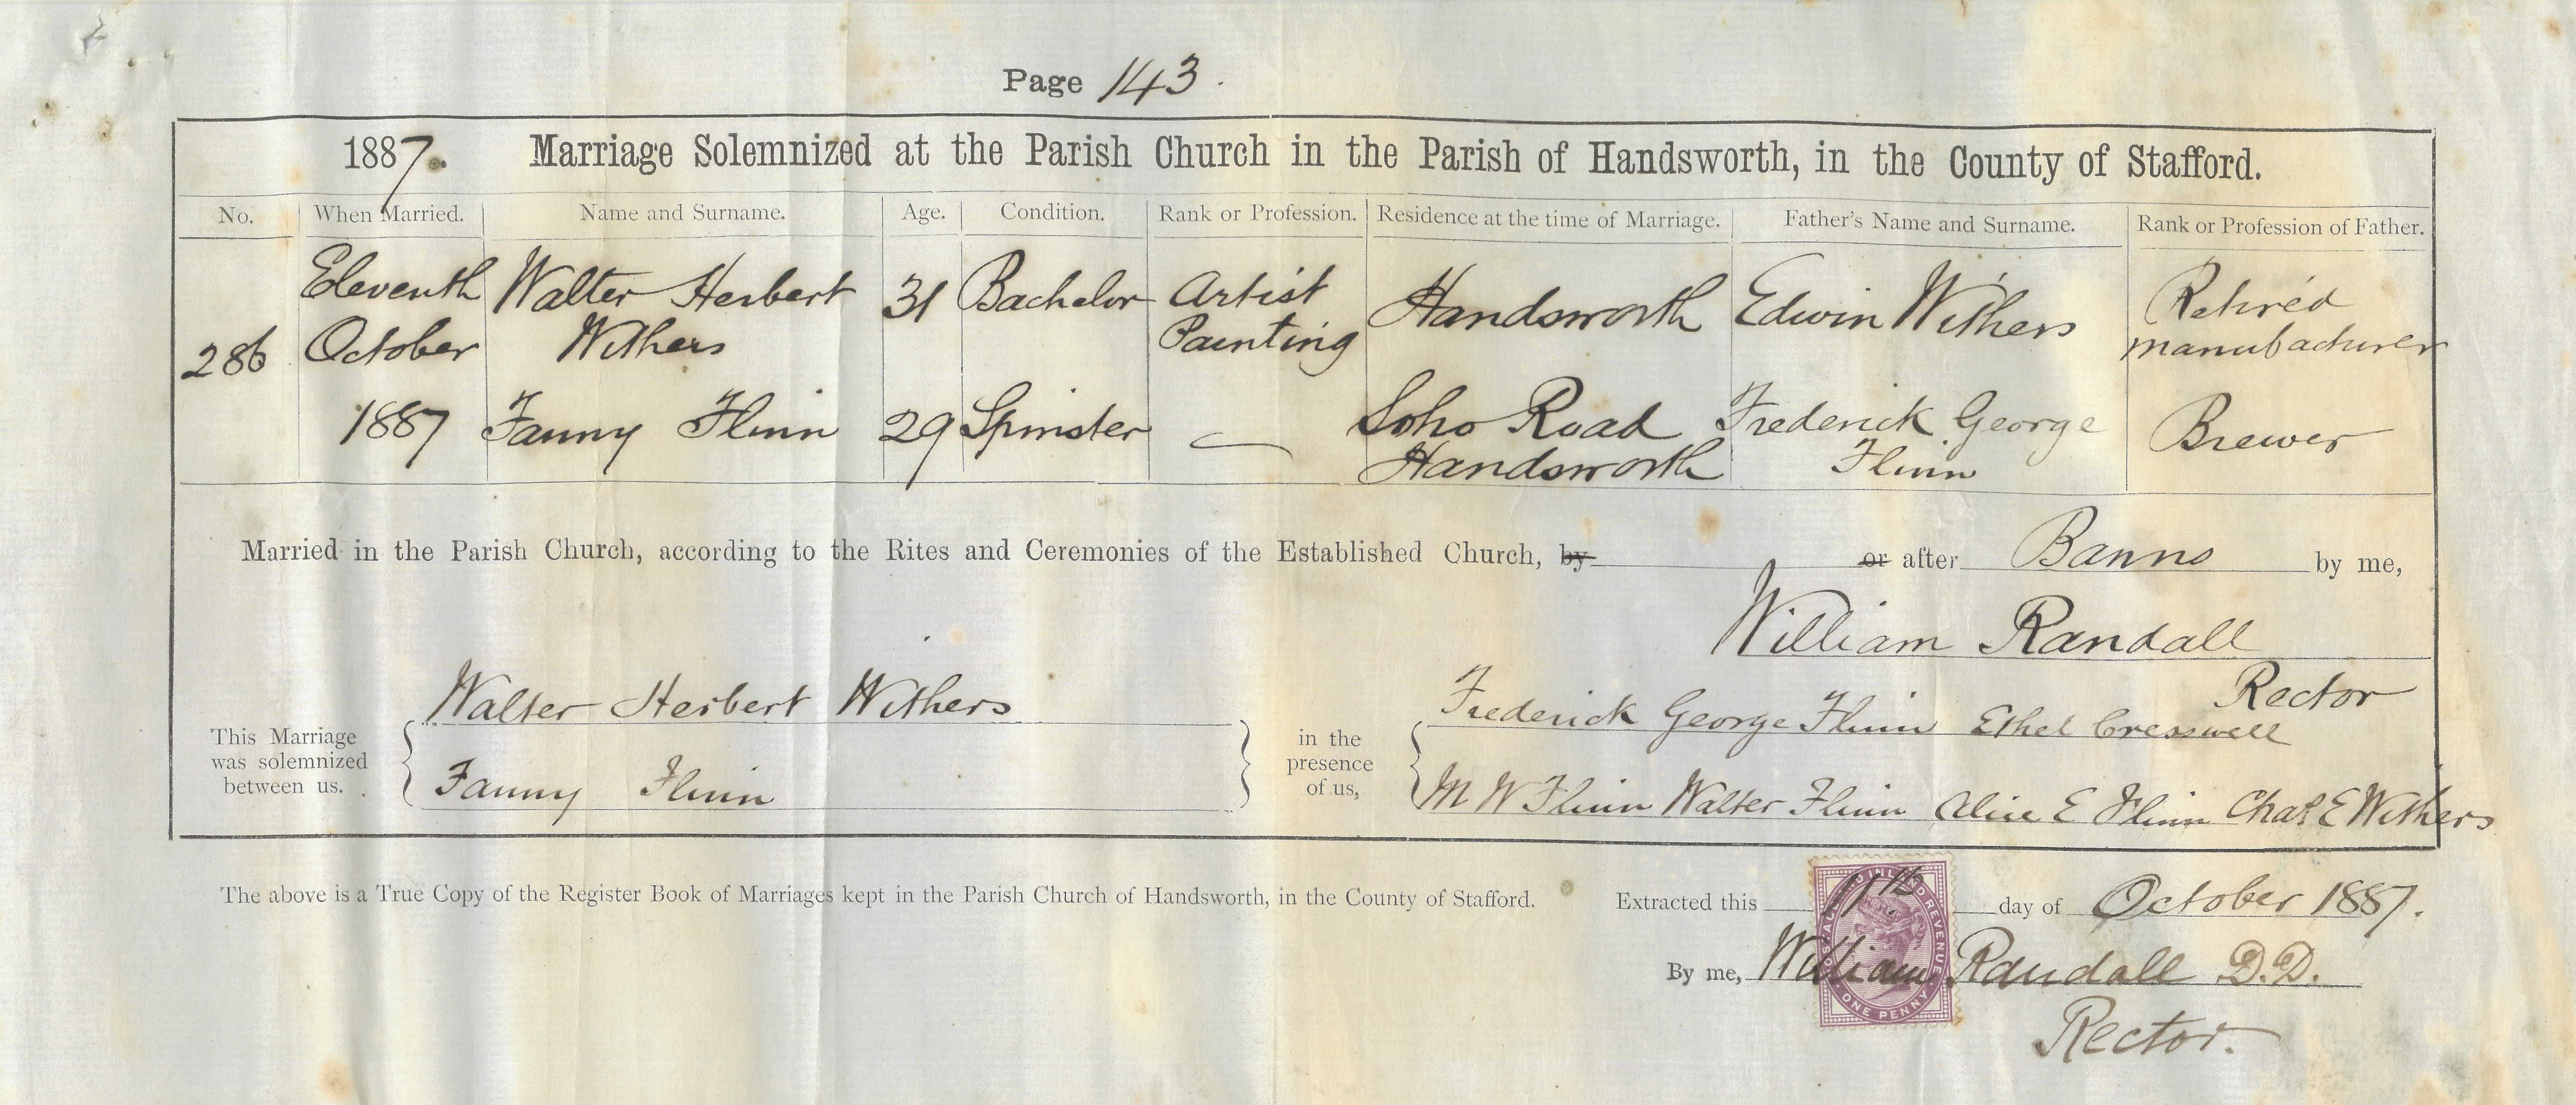 Page 143.
1887. Marriage Solemnized at the Parish Church in the Parish of Handsworth, in the County of Stafford.
No. When Married. Name and Surname. Age. Condition. Rank or Profession. Residence at the time of Marriage. Father's Name and Surname. Rank or Profession of Father.
Eleventh Walter Herbert 31 Bachelor Artist Handsworth Edwin Withers Retired
286 October Withers Painting manufacturer
1887 Fanny Flinn 29 Spinster — Soho Road Frederick George Brewer
Handsworth Flinn
Married in the Parish Church, according to the Rites and Ceremonies of the Established Church, by or after Banns by me,
William Randall
Rector
Walter Herbert Withers Frederick George Flinn Ethel Cresswell
This Marriage was solemnized between us. in the presence of us,
Fanny Flinn M W Flinn Walter Flinn Alice E Flinn Chas E Withers
The above is a True Copy of the Register Book of Marriages kept in the Parish Church of Handsworth, in the County of Stafford. Extracted this 11th day of October 1887.
By me, William Randall D.D.
Rector.
POSTAGE AND INLAND REVENUE
ONE PENNY